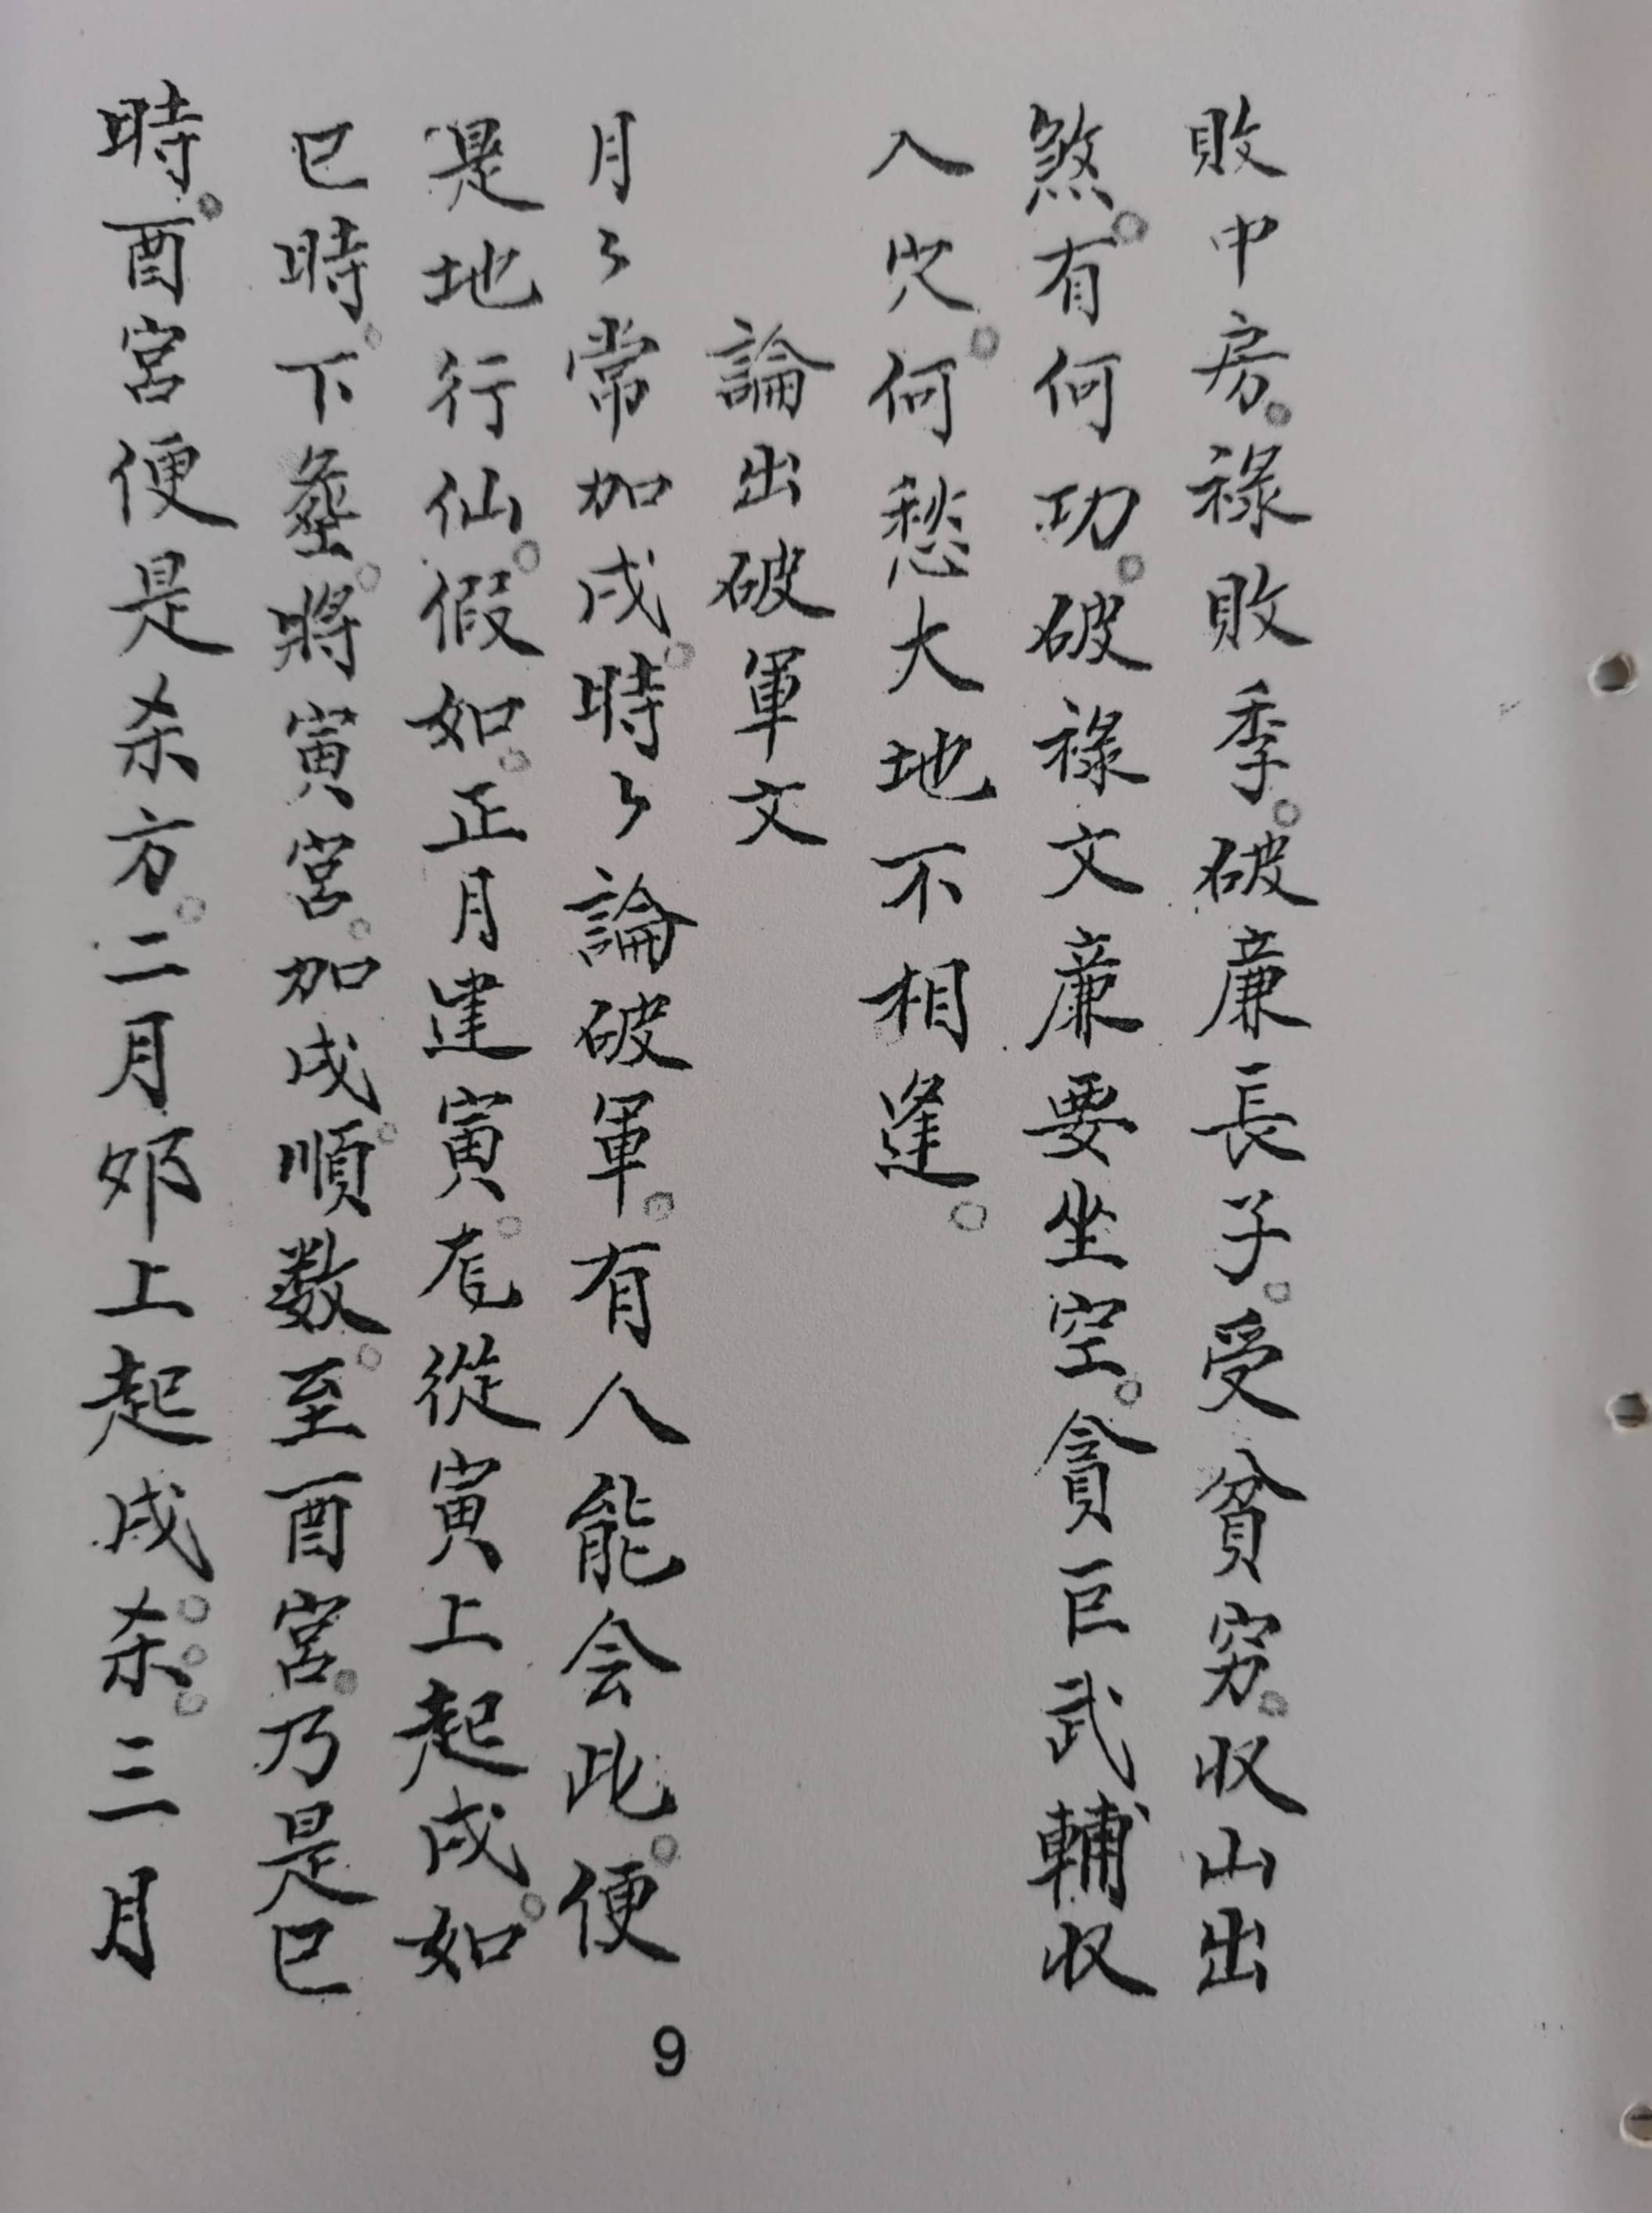 敗中房。祿敗季。破廉長子。受貧窮。收山出
煞。有何功。破祿文廉要坐空。貪巨武輔收
入穴。何愁大地不相逢。
論出破軍文
月々常加戌。時々論破軍。有人能会此。便
是地行仙。假如。正月建寅。從寅上起戌。如
巳時。下塟。將寅宮。加戌。順数。至酉宮。乃是巳
時。酉宮便是杀方。二月卯上起戌杀。。。三月
9